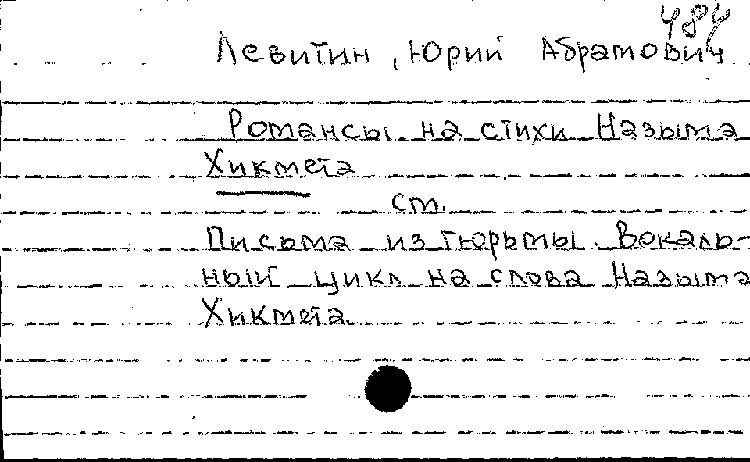 484
Левитин, Юрий Абрамович
Романсы на стихи Назыма
Хикмета
см.
Письма из тюрьмы. Вокаль-
ный цикл на слова Назыма
Хикмета.